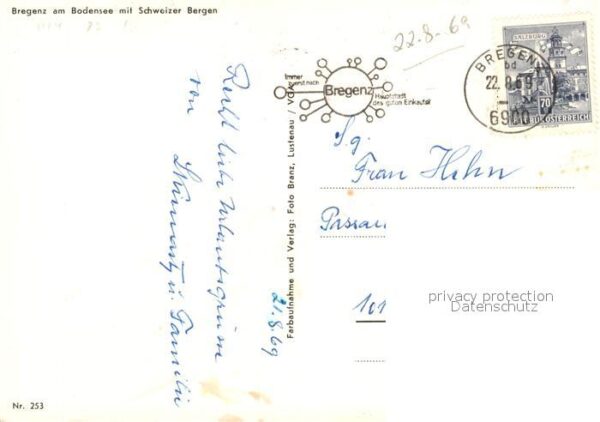 Bregenz am Bodensee mit Schweizer Bergen
22-8-69
Immer
zuerst nach
Bregenz
Hauptstadt
des guten Einkaufs!
SALZBURG
BREGENZ
bd
22.8.69
70
REPUBLIK ÖSTERREICH
S.g.
Frau Hehn
Passau
101
privacy protection
Datenschutz
Recht liebe Urlaubsgrüsse
von
u. Familie
21.8.69
Farbaufnahme und Verlag: Foto Branz, Lustenau / Vlbg.
Nr. 253